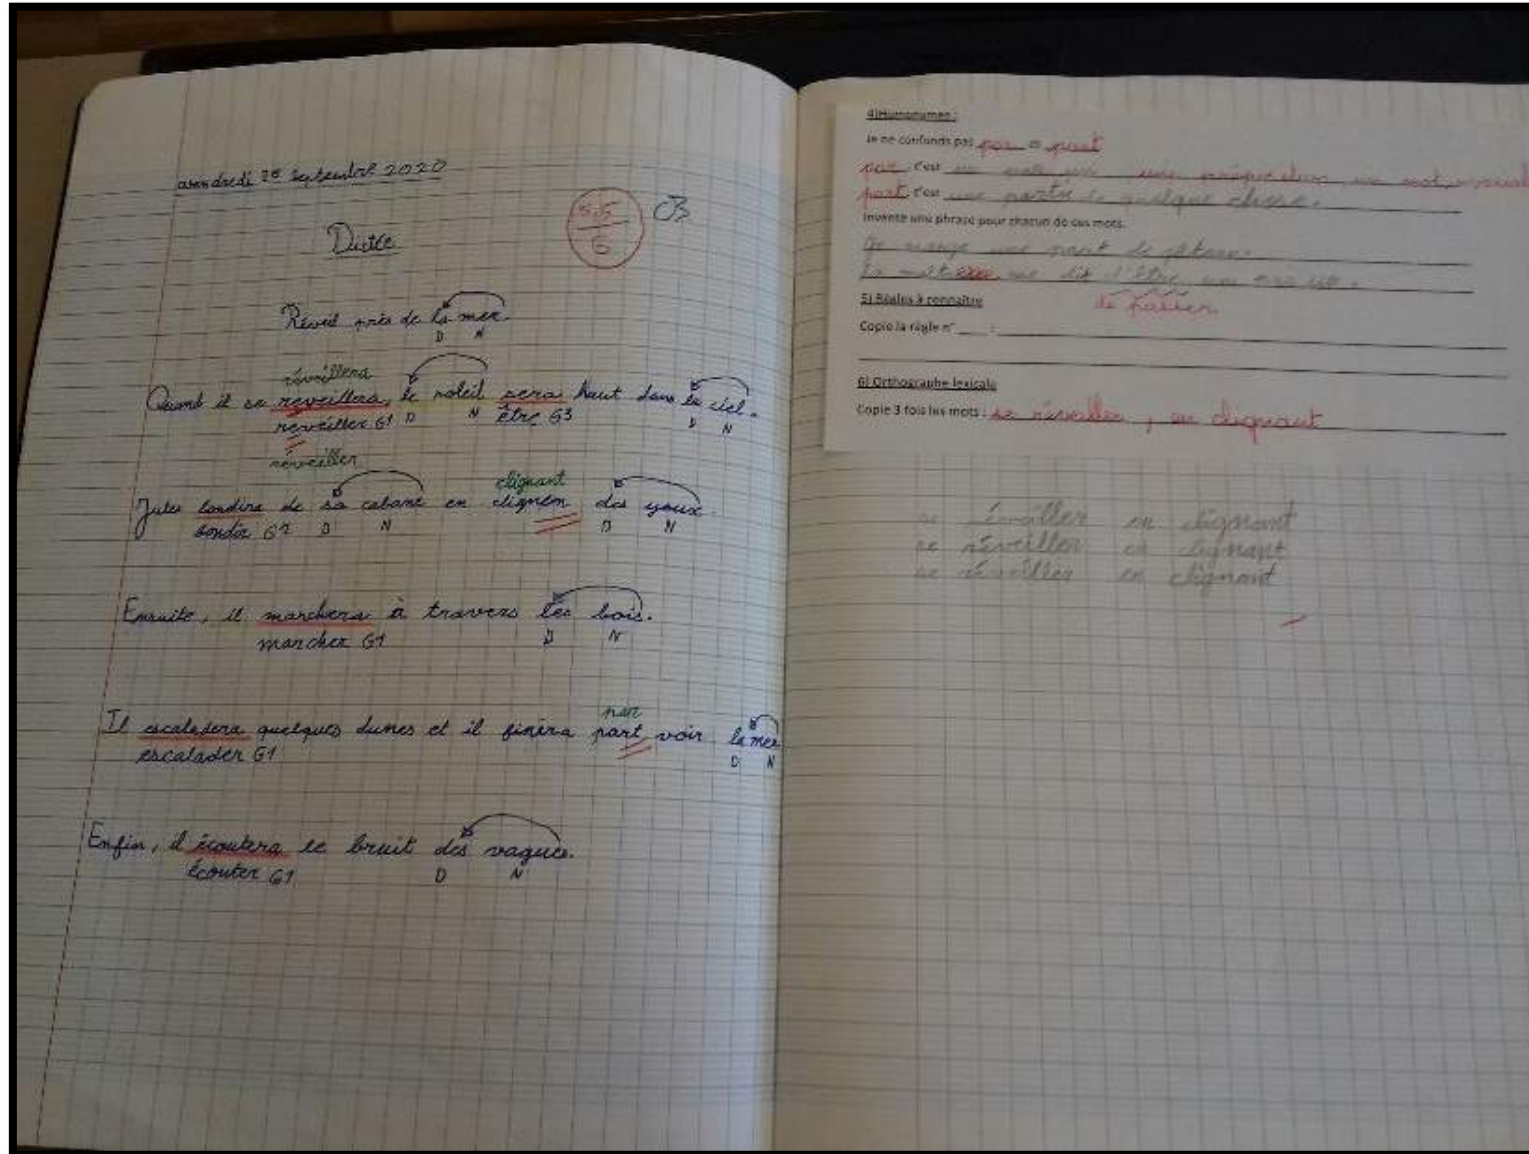 septembre 2020
5,5
6
Dictée
Réveil près de la mer.
D N
réveillera
Quand il se reveillera, le soleil sera haut dans le ciel.
reveiller G1 D N être G3 D N
réveiller
clignant
Jules bondira de sa cabane en clignem des yeux.
bondir G2 D N D N
Ensuite, il marchera à travers les bois.
marcher G1 D N
par
Il escaladera quelques dunes et il finira part voir la mer
escalader G1 D N
Enfin, il écoutera le bruit des vagues.
écouter G1 D N
4)Homonymes :
Je ne confonds pas par et part
par c'est une préposition un mot
part c'est une partie de quelque chose.
Invente une phrase pour chacun de ces mots.
Je mange une part de
5) Règles à connaître
Copie la règle n° :
6) Orthographe lexicale
Copie 3 fois les mots : se réveiller, en clignant
se réveiller en clignant
se réveiller en clignant
se réveiller en clignant